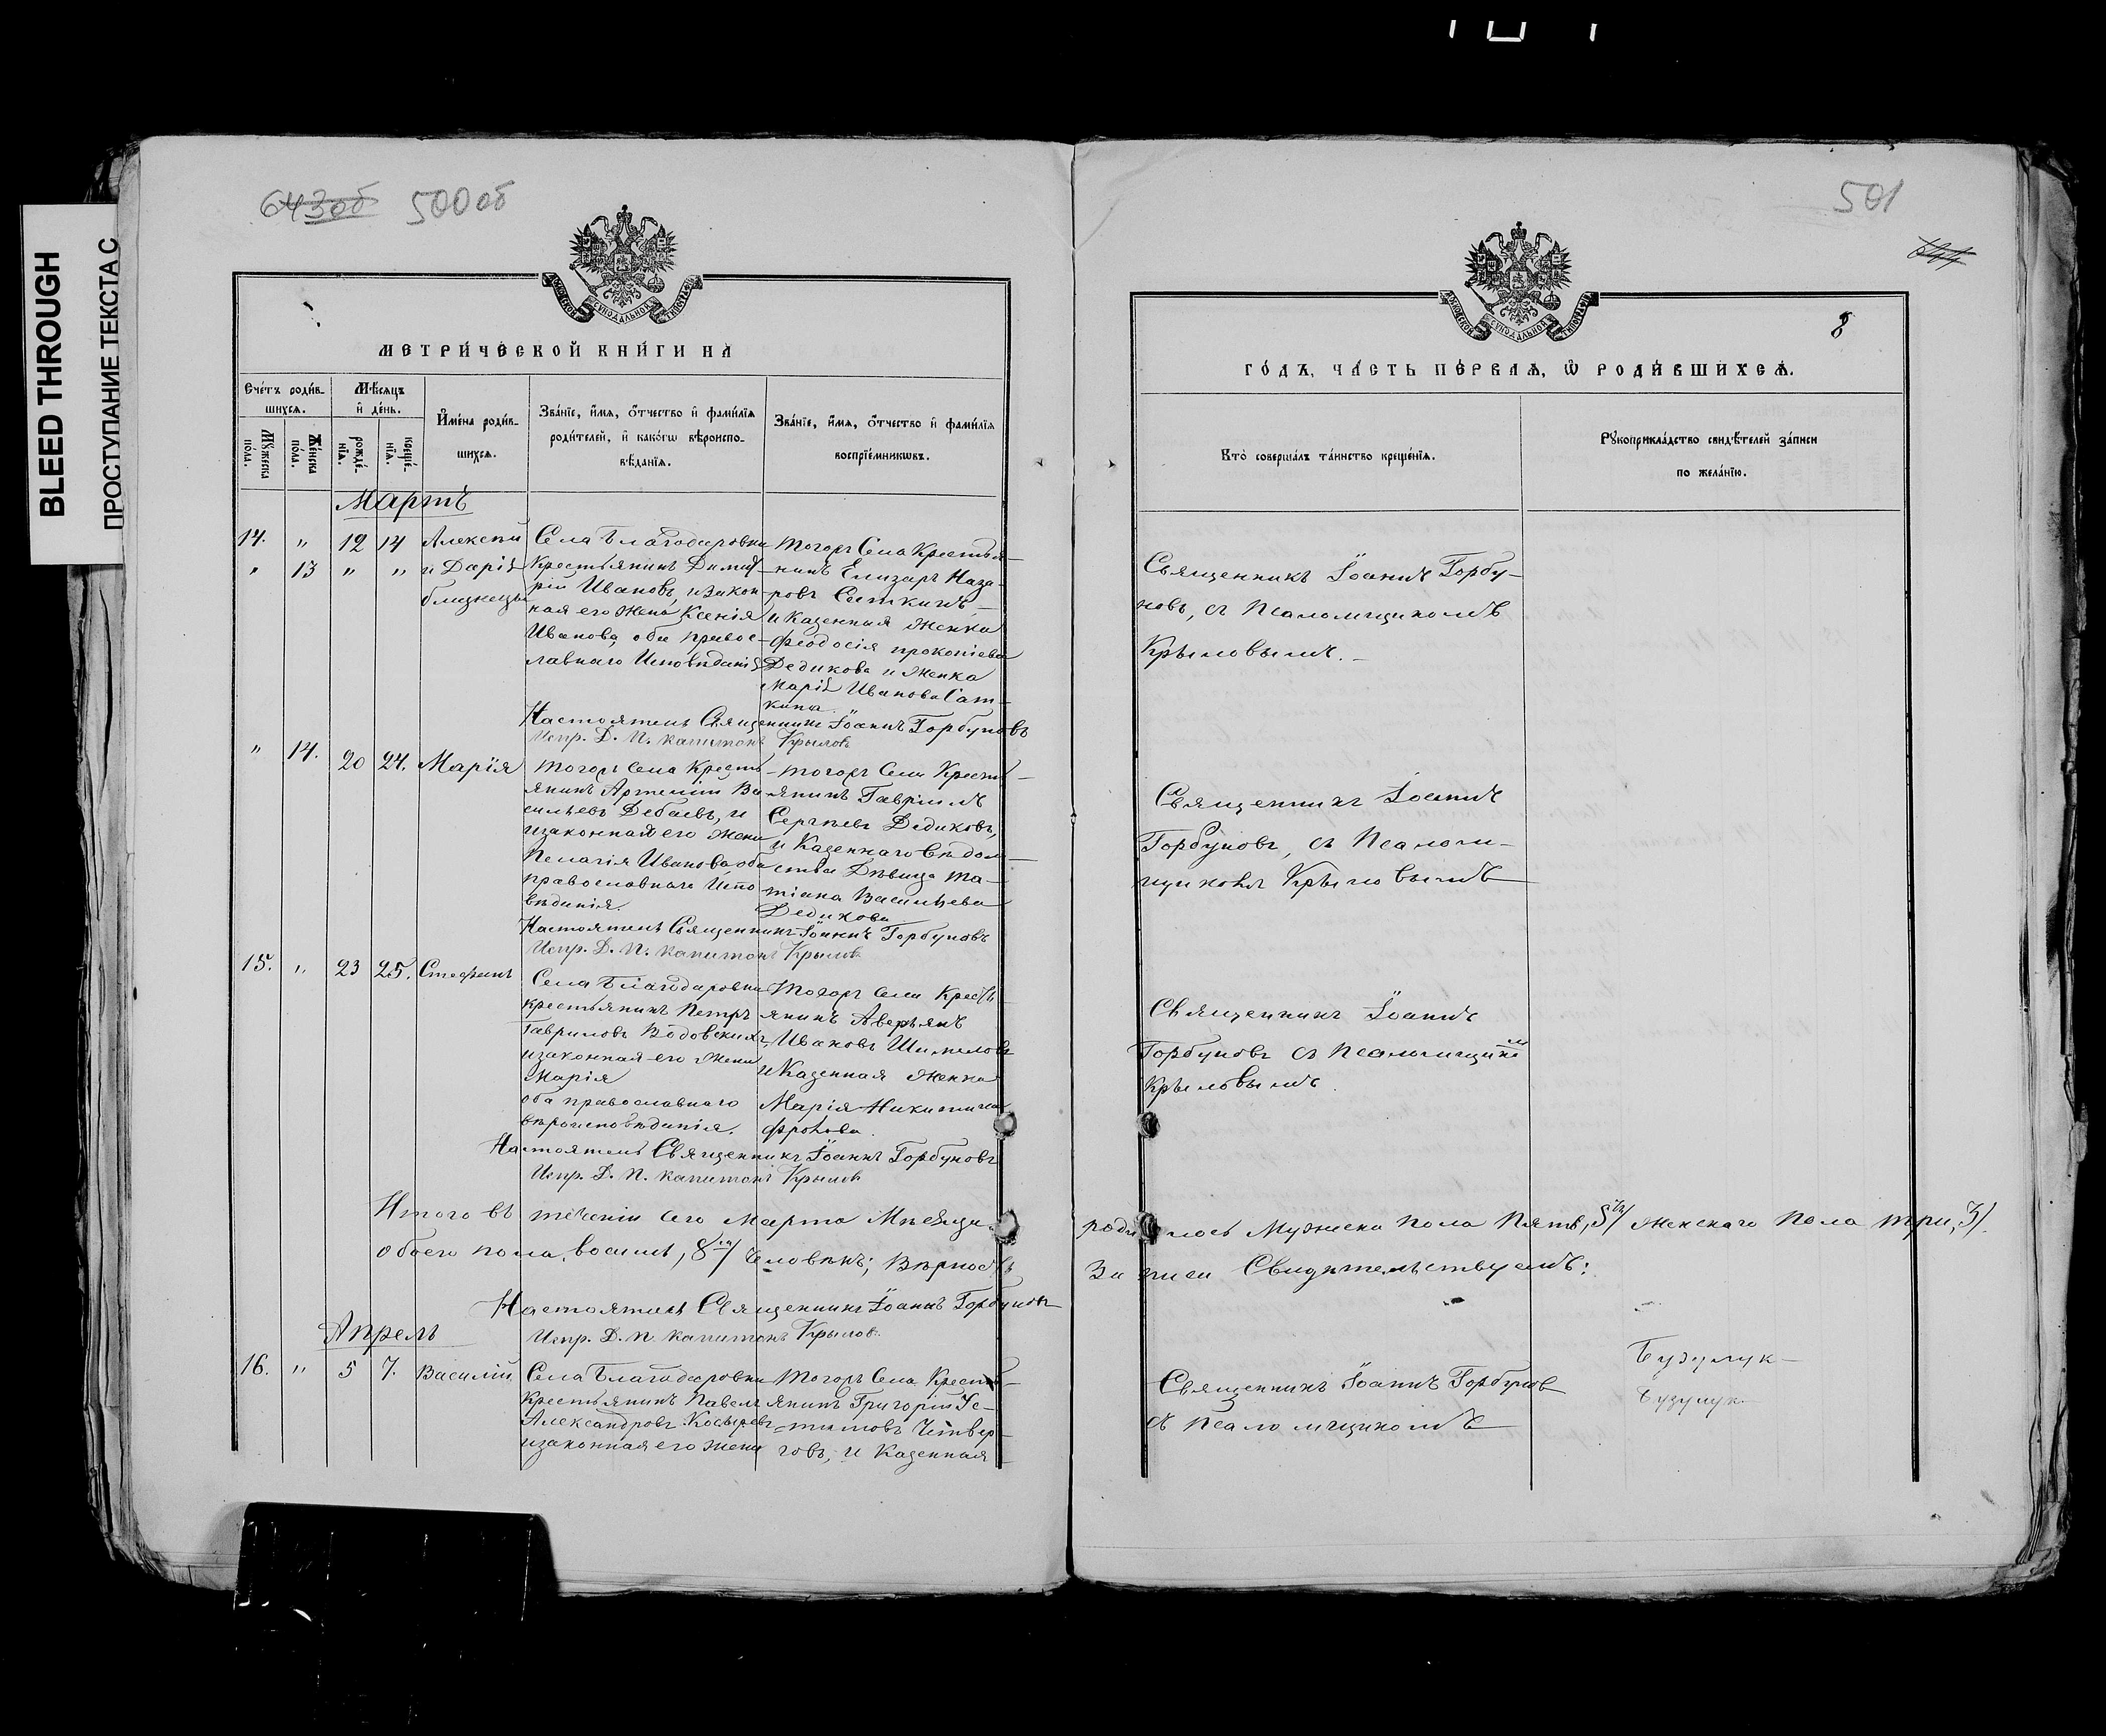 BLEED THROUGH
ПРОСТУПАНИЕ ТЕКСТА С
643об 500об
МЕТРИ́ЧЕСКОЙ КНИ́ГИ НА
Сче́тъ роди́в-
шихсѧ.
Мꙋ́жеска
по́ла.
Же́нска
по́ла.
Мѣ́сѧцъ
и҆ де́нь.
рожде́-
нїѧ.
креще́-
нїѧ.
И҆мена̀ роди́в-
шихсѧ.
Зва́нїе, и҆́мѧ, ѻ҆́тчество и҆ фами́лїѧ
роди́телей, и҆ како́гѡ вѣроиспо-
вѣ́данїѧ.
Зва́нїе, и҆́мѧ, ѻ҆́тчество и҆ фами́лїѧ
воспрїе́мникѡвъ.
Мартъ
14. „ 12 14 Алексѣй
„ 13 „ „ и Дарія
близнецы
Села Благодаровки
Крестьянинъ Димит-
рій Ивановъ, и закон-
ная его Жена Ксенія
Иванова, оба правос-
лавнаго Исповѣданія
Тогожъ Села Крестья-
нинъ Елизаръ Наза-
ровъ Саткинъ,
и Казенная Женка
Феодосія Прокопіева
Дедикова и Женка
Марія Иванова Сат-
кина
Настоятель Священникъ Іоаннъ Горбуновъ
Испр. Д. П. Капитонъ Крыловъ
„ 14. 20 24. Марія
Тогожъ Села Кресть-
янинъ Артемій Ва-
сильевъ Дебаевъ, и
изаконная его Жена
Пелагія Иванова, оба
православнаго Испо
вѣданія.
Тогожъ Села Кресть-
янинъ Гавріилъ
Сергѣевъ Дедиковъ,
и Казеннаго вѣдом-
ства Дѣвица Та-
тіана Васильева
Дедикова
Настоятель Священникъ Іоаннъ Горбуновъ
Испр. Д. П. Капитонъ Крыловъ
15. „ 23 25. Стефанъ
Села Благодаровки
крестьянинъ Петръ
Гавриловъ Водовскихъ,
изаконная его Жена
Марія
оба православнаго
вѣроисповѣданія.
Тогожъ Села Кресть
янинъ Аверьянъ
Ивановъ
и Казенная Женка
Марія Никитина
Фролова.
Настоятель Священникъ Іоаннъ Горбуновъ
Испр. Д. П. Капитонъ Крыловъ
Итого въ теченіи сего Марта Мѣсяца
обоего пола, восемь, 8 человѣкъ; Вѣрность
Настоятель Священникъ Іоаннъ Горбуновъ
Испр. Д. П. Капитонъ Крыловъ.
Апрель
16. „ 5 7. Василій
Села Благодаровки
крестьянинъ Павелъ
Александровъ Косыревъ
изаконная его жена
Тогожъ Села Кресть-
янинъ Григорій Ус-
тиновъ Четвер-
говъ, и Казенная
501
644
8
ГО́ДЪ, ЧА́СТЬ ПЕ́РВАѦ, Ѽ РОДИ́ВШИХСѦ.
Кто̀ соверша́лъ та́инство креще́нїѧ.
Рꙋкоприкла́дство свидѣ́телей за́писи
по жела́нїю.
Священникъ Іоаннъ Горбу-
новъ, съ Псаломщикомъ
Крыловымъ.
Священникъ Іоаннъ
Горбуновъ, съ Псалом-
щикомъ Крыловымъ
Священникъ Іоаннъ
Горбуновъ съ Псаломщиком
Крыловымъ.
родилось Мужска пола Пять, 5 женскаго пола три, 3).
Записи Свидѣтельствуемъ:
Священникъ Іоаннъ Горбунов
съ Псаломщикомъ
Бузулук
Бузулук